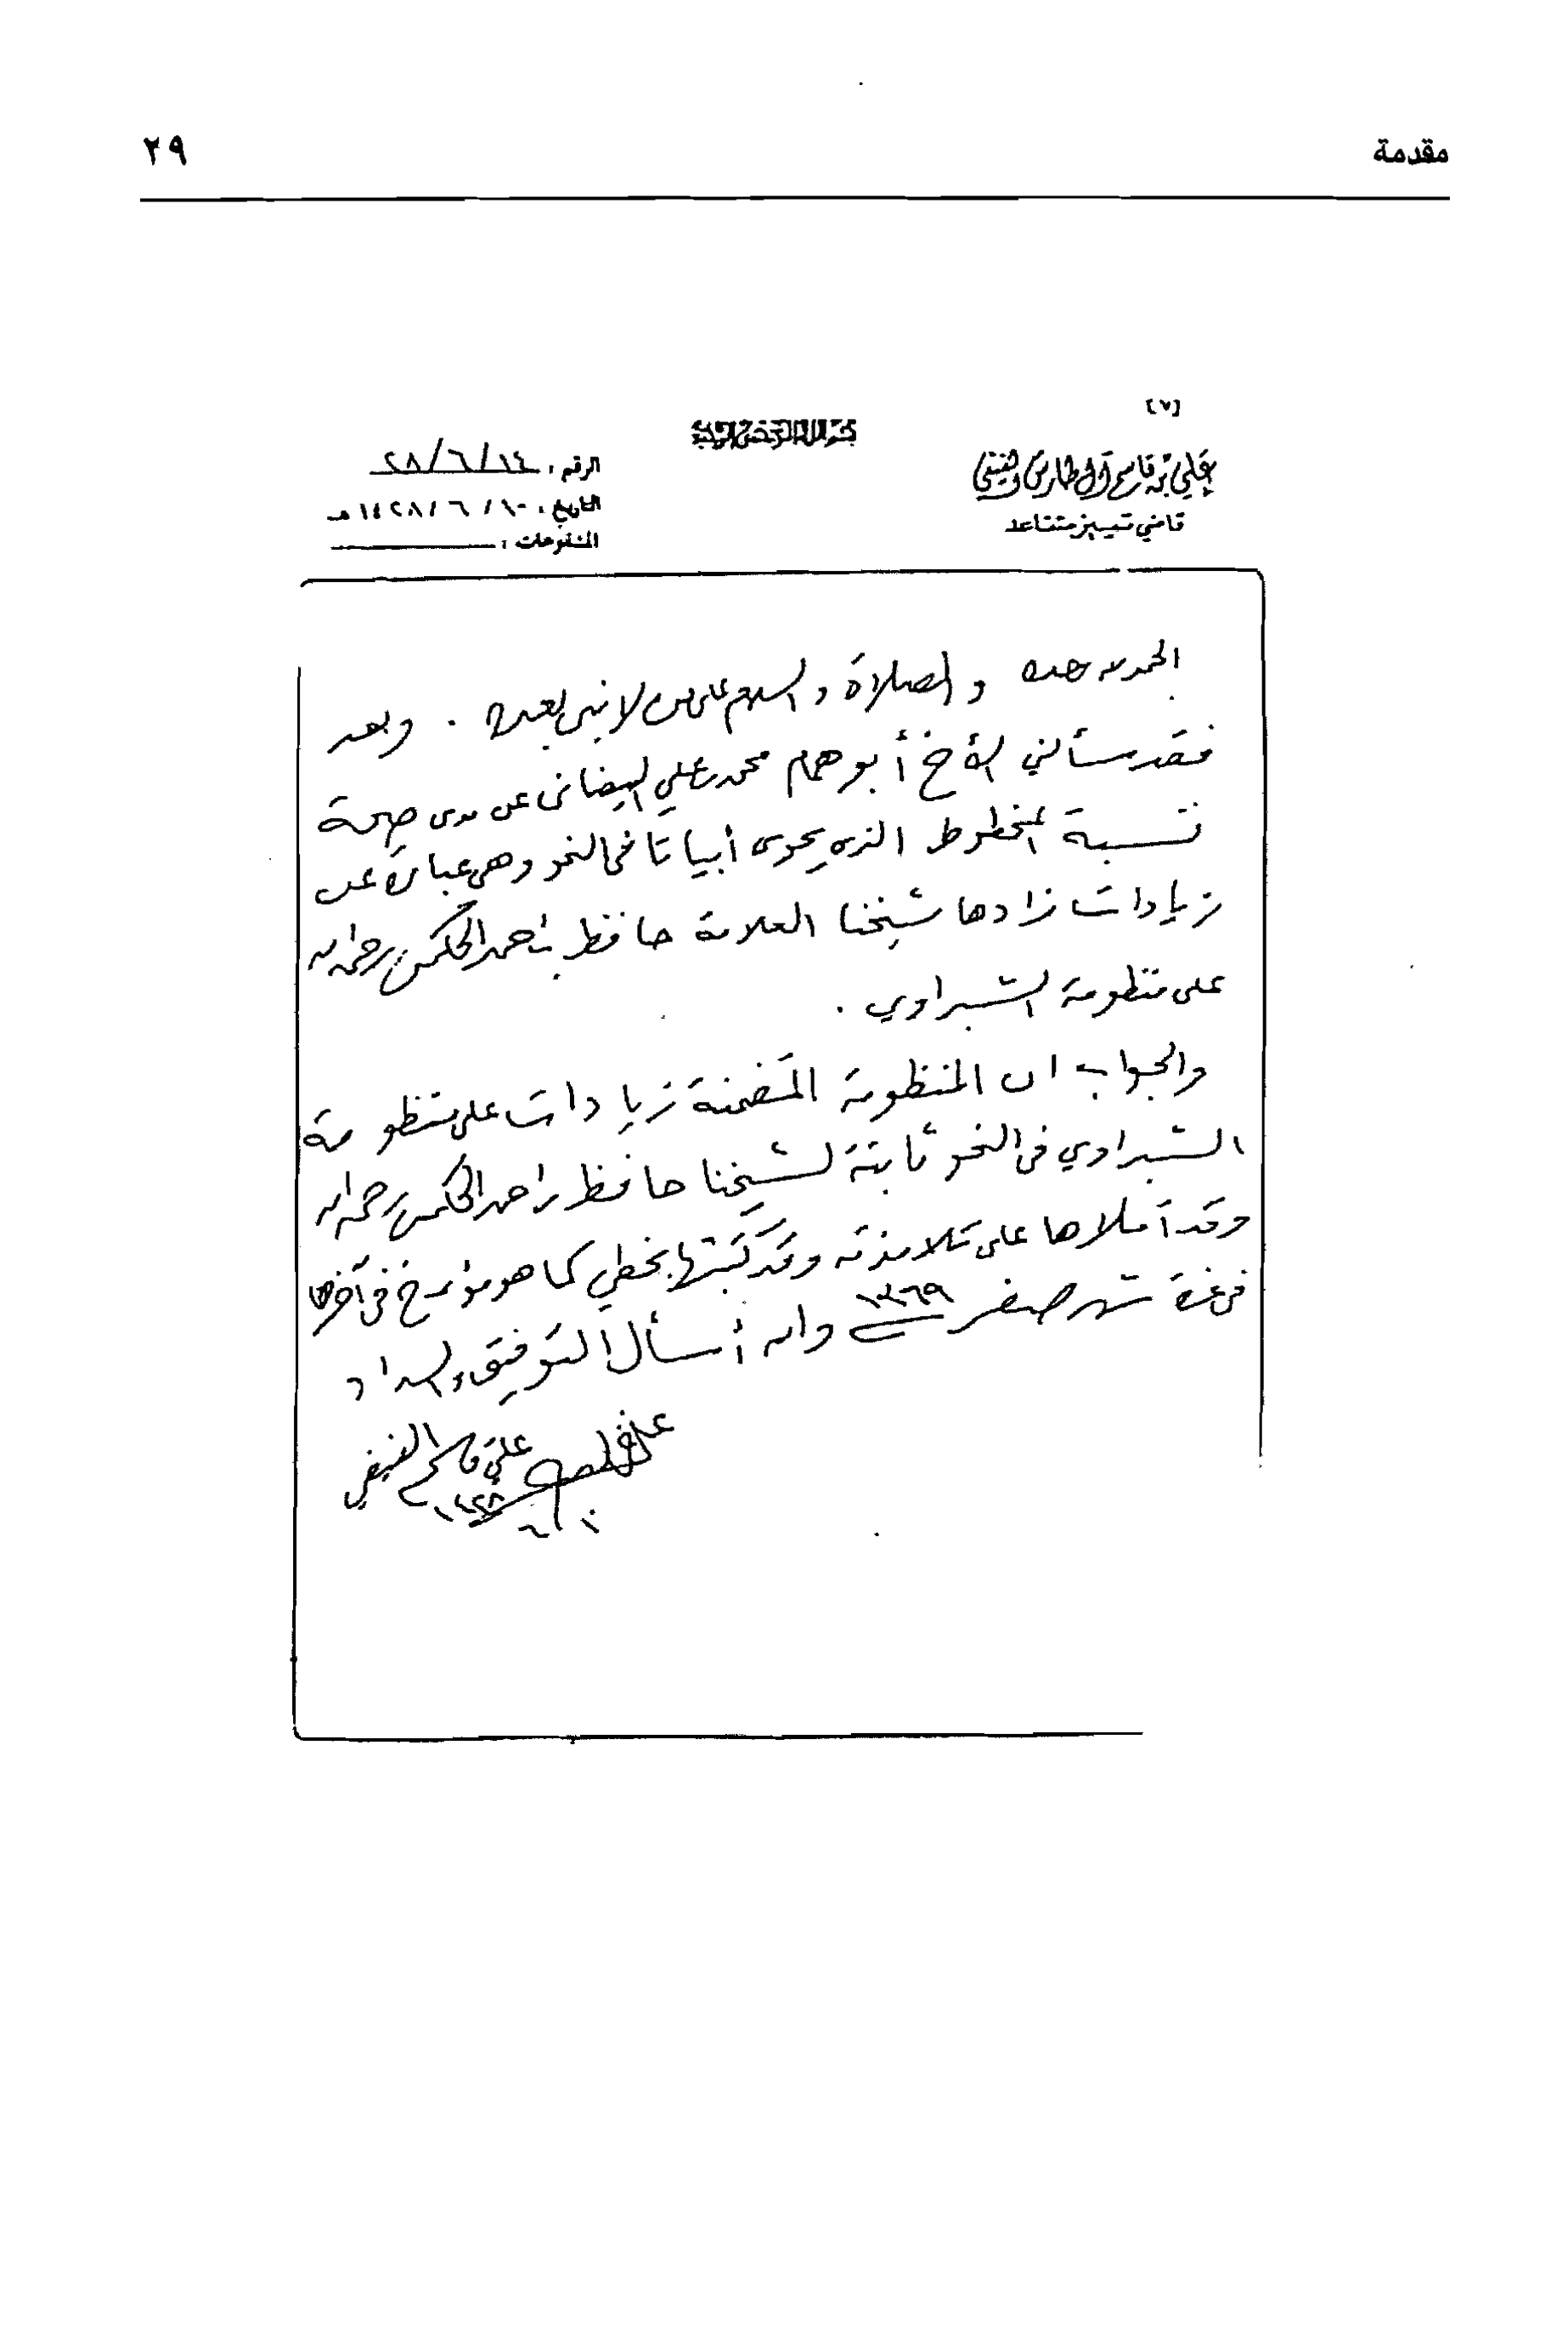 مقدمة ٢٩
[٧]
بسم الله الرحمن الرحيم
علي بن قاسم آل طارش الفيفي
قاضي تمييز متقاعد
الرقم : ٢٨/٦/١٤
التاريخ : ١٠ / ٦ / ١٤٢٨ هـ
المشفوعات :
الحمد لله وحده والصلاة والسلام على من لا نبي بعده . وبعد
فقد سألني الأخ أبو همام محمد بن علي البيضاني عن مدى صحة
نسبة المخطوط الذي يحوي أبياتا في النحو وهي عبارة عن
زيادات زادها شيخنا العلامة حافظ بن احمد الحكمي رحمه الله
على منظومة الشبراوي .
والجواب ان المنظومة المتضمنة زيادات على منظومة
الشبراوي في النحو ثابتة لشيخنا حافظ بن احمد الحكمي رحمه الله
وقد أملاها على تلامذته وقد كتبتها بخطي كما هو مؤرخ في آخرها
في غرة شهر صفر ١٣٦٩ والله أسأل التوفيق والسداد
علي قاسم الفيفي
١٠/٦/١٤٢٨